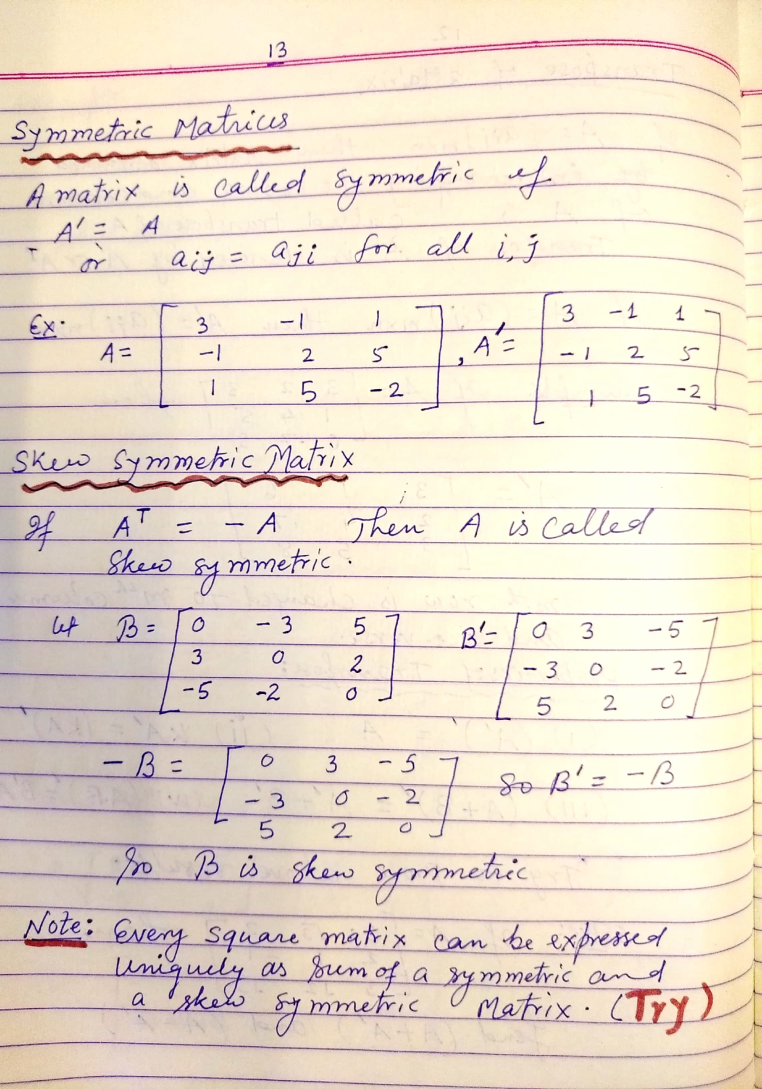 13
Symmetric Matrices
A matrix is called symmetric if
A' = A
or aij = aji for all i, j
Ex: A = [ 3 -1 1 , A' = [ 3 -1 1
-1 2 5 -1 2 5
1 5 -2 ] 1 5 -2 ]
Skew Symmetric Matrix
If A^T = - A Then A is called
Skew symmetric.
let B = [ 0 -3 5 B' = [ 0 3 -5
3 0 2 -3 0 -2
-5 -2 0 ] 5 2 0 ]
- B = [ 0 3 -5
-3 0 -2 So B' = - B
5 2 0 ]
So B is skew symmetric
Note: Every square matrix can be expressed
uniquely as sum of a symmetric and
a skew symmetric Matrix. (Try)